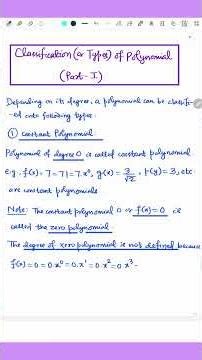 Classification (or Types) of Polynomial
(Part-I)
Depending on its degree, a polynomial can be classifi-
-ed into following types:
① Constant Polynomial
Polynomial of degree 0 is called constant polynomial
e.g. f(x) = 7 = 7.1 = 7.x⁰, g(x) = 3/√2, h(y) = 3, etc
are constant polynomials
Note: The constant polynomial 0 or f(x)=0 is
called the zero polynomial.
The degree of zero polynomial is not defined because
f(x) = 0 = 0.x⁰ = 0.x¹ = 0.x² = 0.x³ -